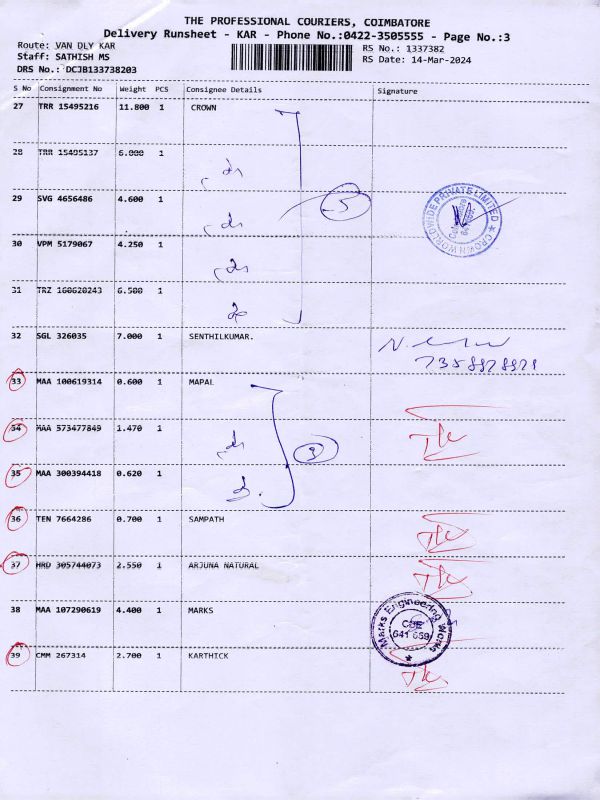 THE PROFESSIONAL COURIERS, COIMBATORE
Delivery Runsheet - KAR - Phone No.:0422-3505555 - Page No.:3
Route: VAN DLY KAR
Staff: SATHISH MS
DRS No.: DCJB133738203
RS No.: 1337382
RS Date: 14-Mar-2024
S No Consignment No Weight PCS Consignee Details Signature
27 TRR 15495216 11.800 1 CROWN
28 TRR 15495137 6.000 1
29 SVG 4656486 4.600 1
5
CROWN WORLDWIDE PRIVATE LIMITED
30 VPM 5179067 4.250 1
31 TRZ 160620243 6.500 1
32 SGL 326035 7.000 1 SENTHILKUMAR.
33 MAA 100619314 0.600 1 MAPAL
34 MAA 573477849 1.470 1
3
35 MAA 300394418 0.620 1
36 TEN 7664286 0.700 1 SAMPATH
37 HRD 305744073 2.550 1 ARJUNA NATURAL
38 MAA 107290619 4.400 1 MARKS
Marks Engineering Works
CBE
641 659
39 CMM 267314 2.700 1 KARTHICK